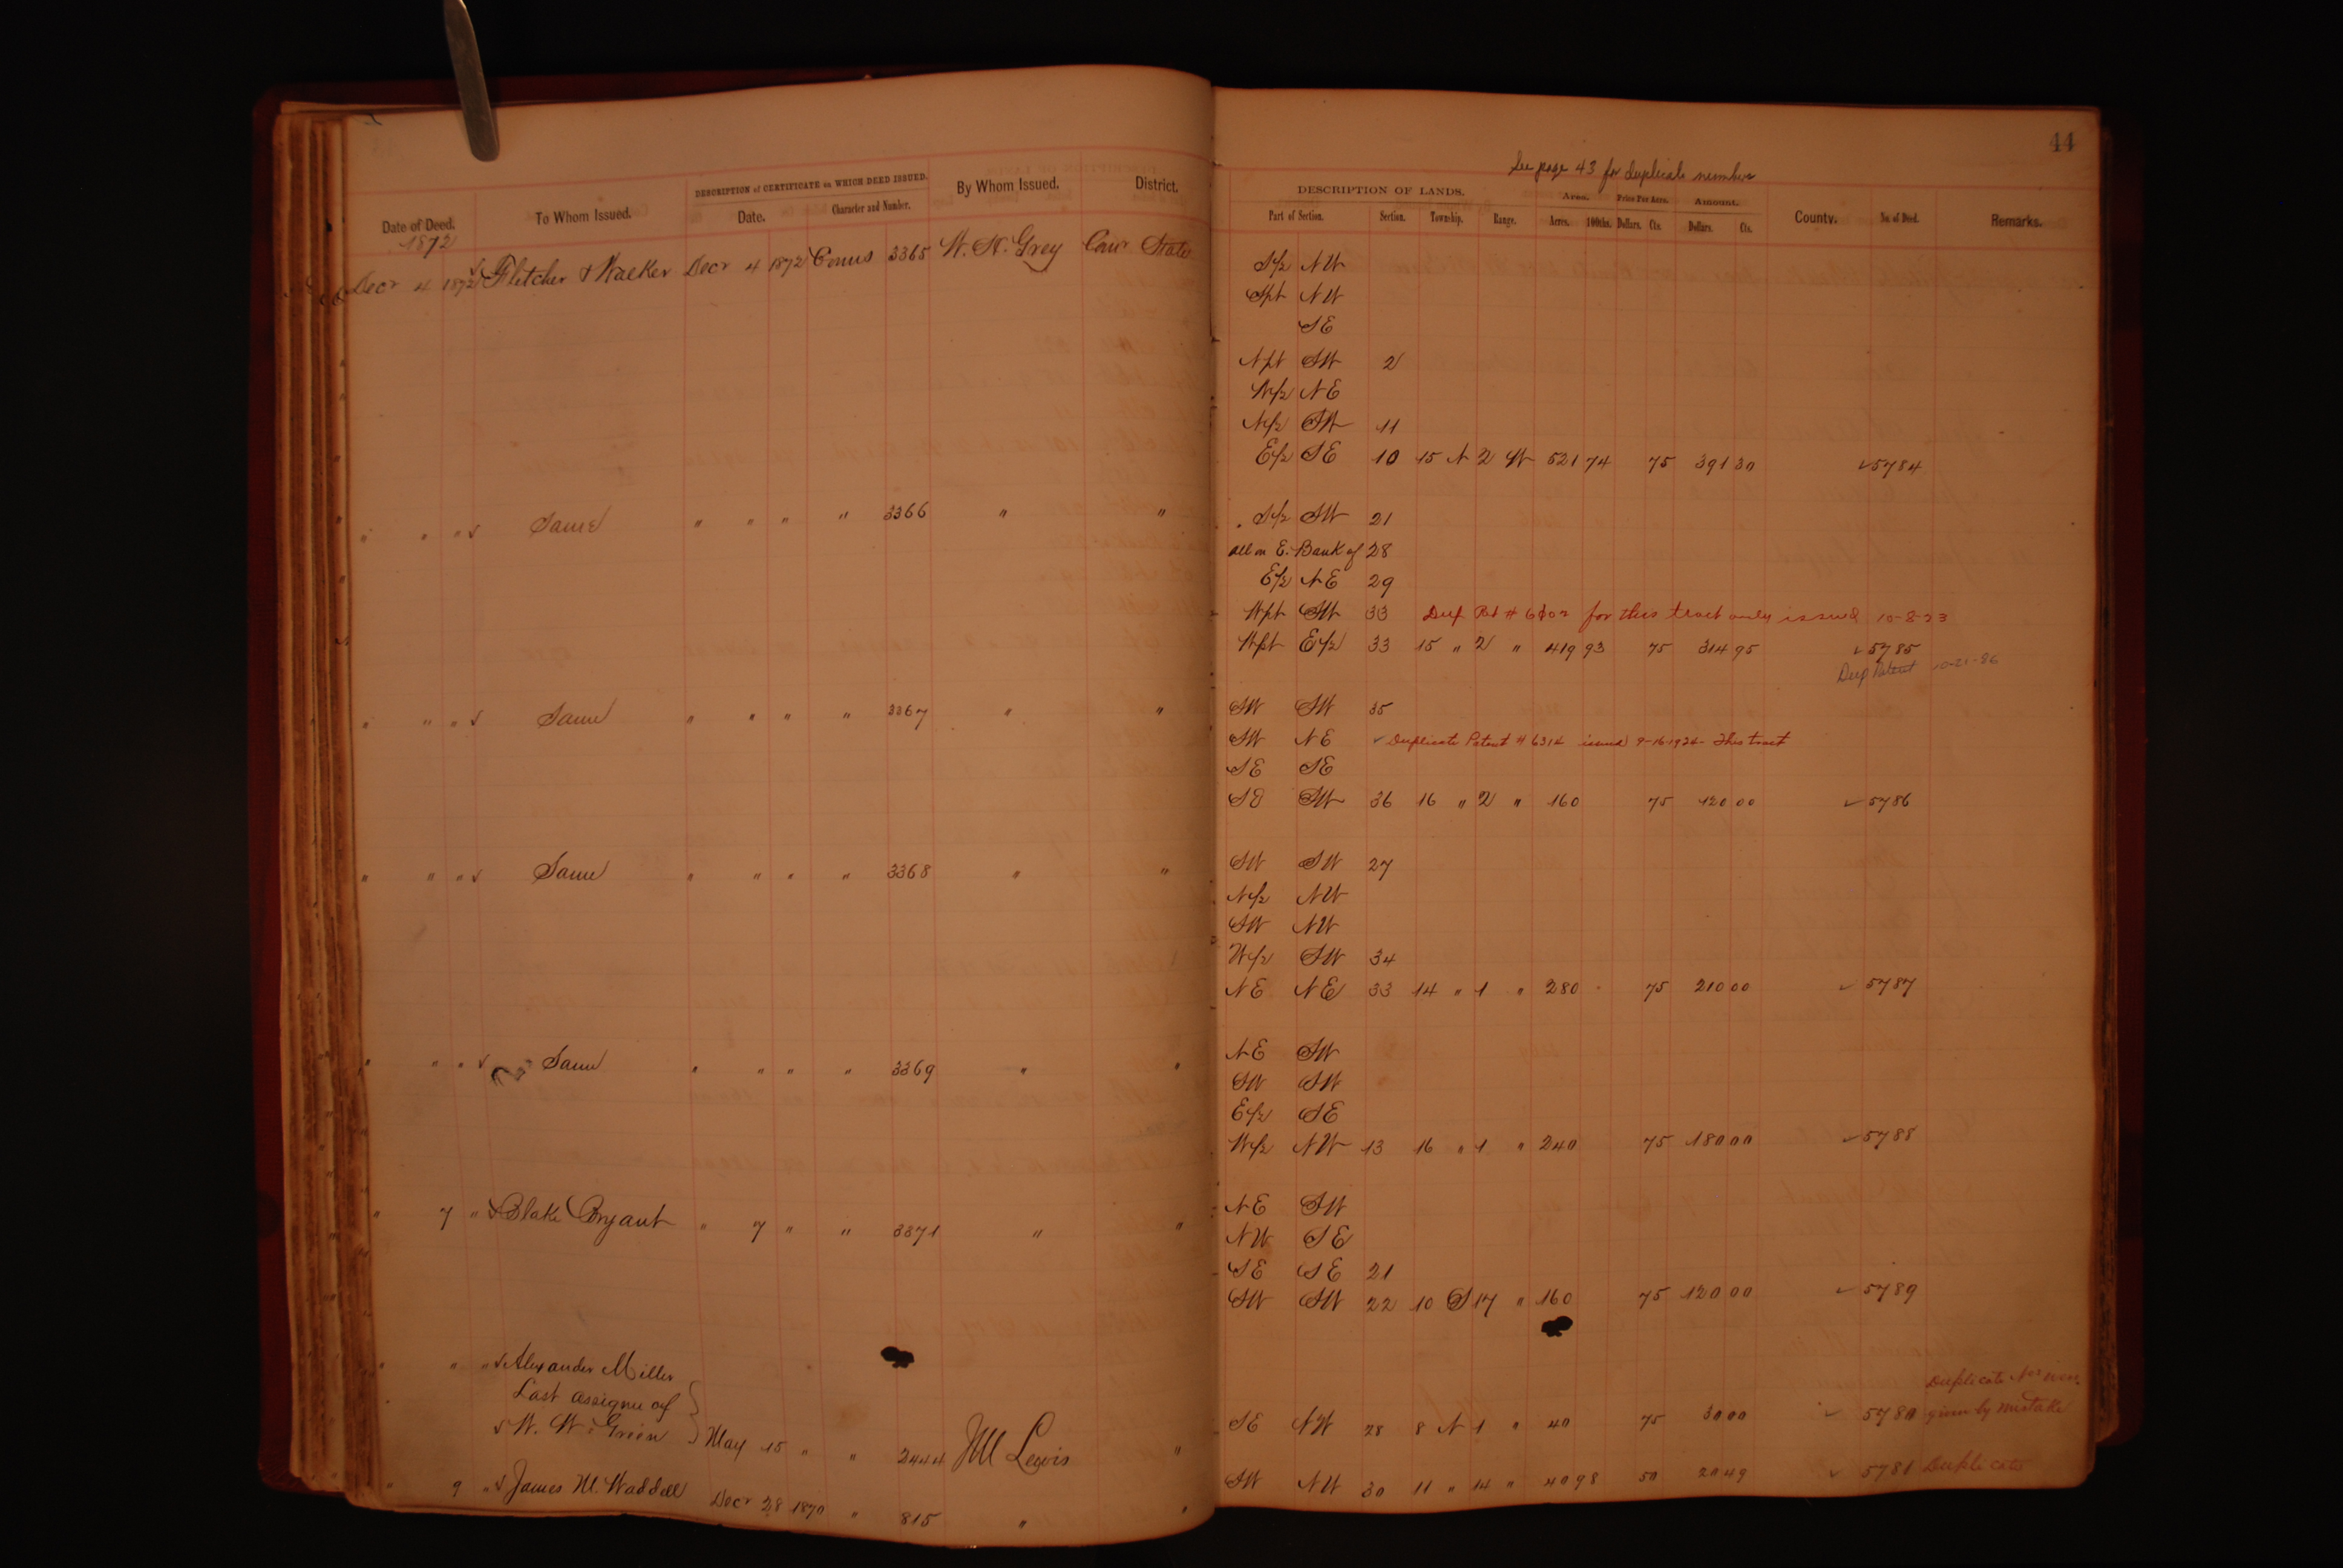 44
See page 43 for Duplicate number
Date of Deed. To Whom Issued. DESCRIPTION of CERTIFICATE on WHICH DEED ISSUED. Date. Character and Number. By Whom Issued. District.
DESCRIPTION OF LANDS. Part of Section. Section. Township. Range. Area. Acres. 100ths. Price Per Acre. Dollars. Cts. Amount. Dollars. Cts. County. No. of Deed. Remarks.
1872
Decr 4 1872 ✓ Fletcher & Walker Decr 4 1872 Comrs 3365 W. H. Grey Comr State
S/2 NW
Spt NW
SE
Npt SW 2
W/2 NE
N/2 SW 11
E/2 SE 10 15 N 2 W 521 74 75 391 30 ✓ 5784
" " " ✓ Same " " " " 3366 " "
S/2 SW 21
all on E. Bank of 28
E/2 NE 29
Wpt SW 33 Dup Pat # 6302 for this tract only issued 10-8-23
Wpt E/2 33 15 " 2 " 419 93 75 314 95 ✓ 5785
Dup Patent 10-21-86
" " " ✓ Same " " " " 3367 " "
SW SW 35
SW NE ✓ Duplicate Patent # 6314 issued 9-16-1924 - This tract
SE SE
SE SW 36 16 " 2 " 160 75 120 00 ✓ 5786
" " " ✓ Same " " " " 3368 " "
SW SW 27
N/2 NW
SW NW
W/2 SW 34
NE NE 33 14 " 1 " 280 75 210 00 ✓ 5787
" " " ✓ Same " " " " 3369 " "
NE SW
SW SW
E/2 SE
W/2 NW 13 16 " 1 " 240 75 180 00 ✓ 5788
" 7 " ✓ Blake Bryant " 7 " " 3371 " "
NE SW
NW SE
SE SE 21
SW SW 22 10 S 17 " 160 75 120 00 ✓ 5789
" " " ✓ Alexander Miller
Last assignee of
✓ W. W. Green } May 15 " " 2444 JM Lewis "
SE NW 28 8 N 1 " 40 75 30 00 ✓ 5780 Duplicate Nos were given by mistake
" 9 " ✓ James M. Waddell Decr 28 1870 " 815 " "
SW NW 30 11 " 14 " 40 98 50 20 49 ✓ 5781 Duplicate